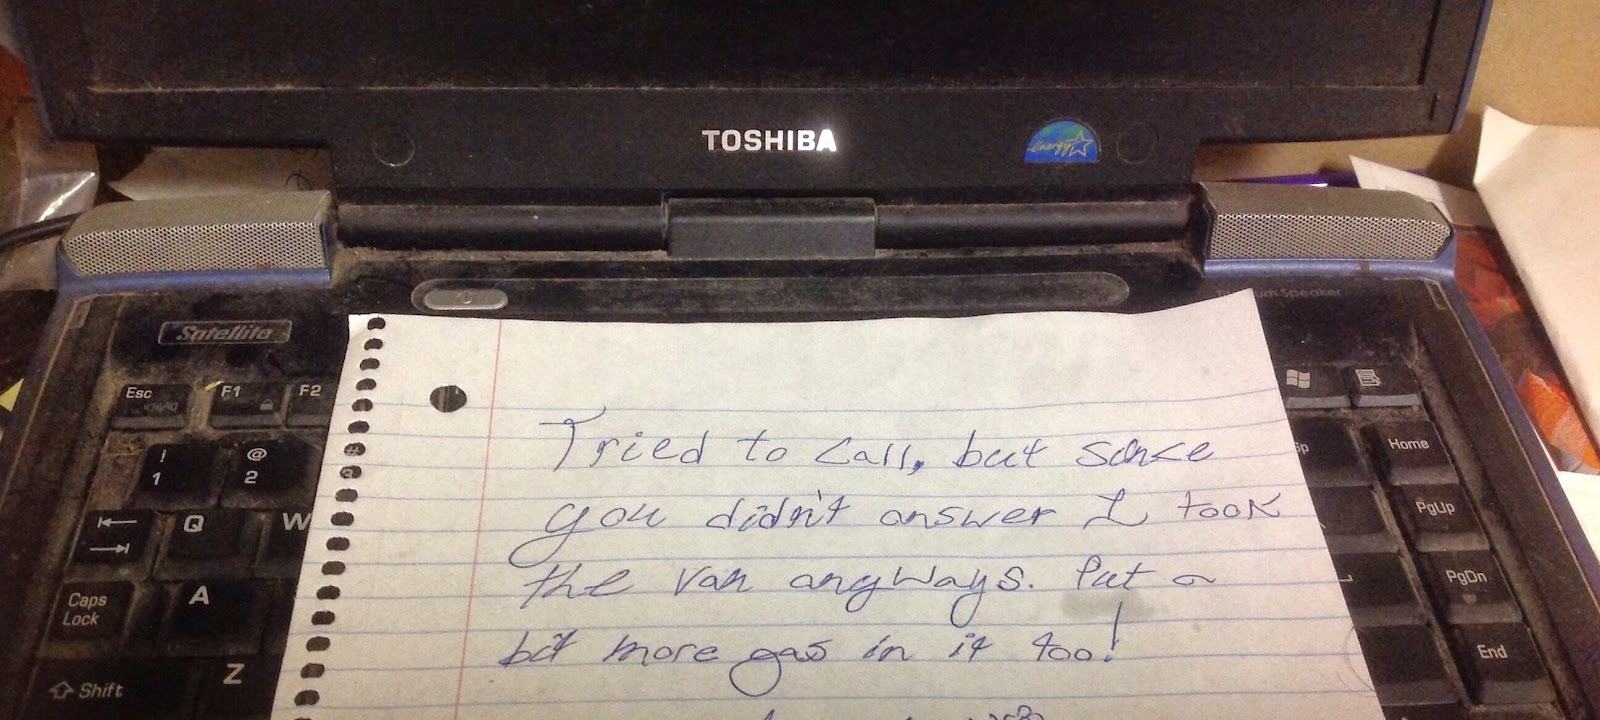 TOSHIBA
energy
Satellite
Esc
F1
F2
Home
!
1
@
2
Q
W
PgUp
Caps
Lock
A
PgDn
Shift
Z
End
Tried to Call, but since
you didn't answer I took
the van anyways. Put a
bit more gas in it too!